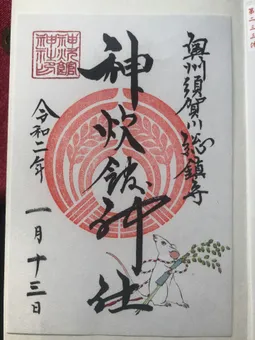 奥州須賀川総鎮守
神炊館神社
令和二年
一月十三日
神炊館
神社印